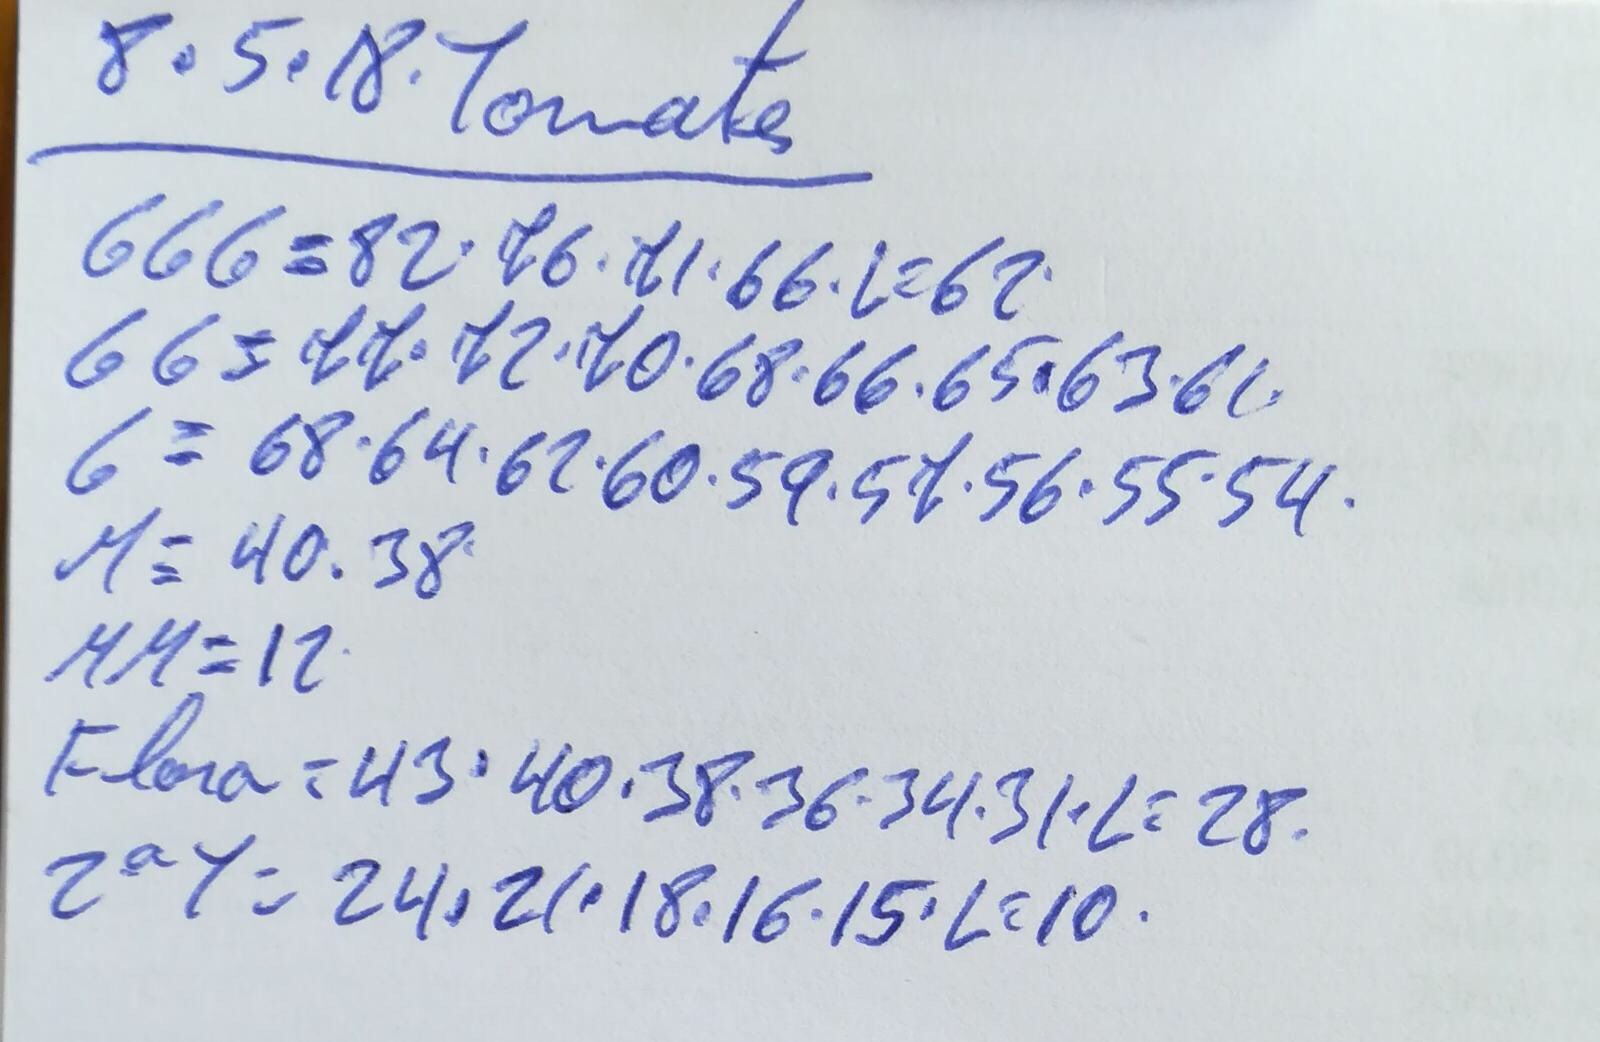 8.5.18. Tomates
666=82.76.71.66.L=62.
66=77.72.70.68.66.65.63.61.
6=68.64.62.60.59.57.56.55.54.
M=40.38.
MM=12.
Flora=43.40.38.36.34.31.L=28.
2ªY=24.21.18.16.15.L=10.